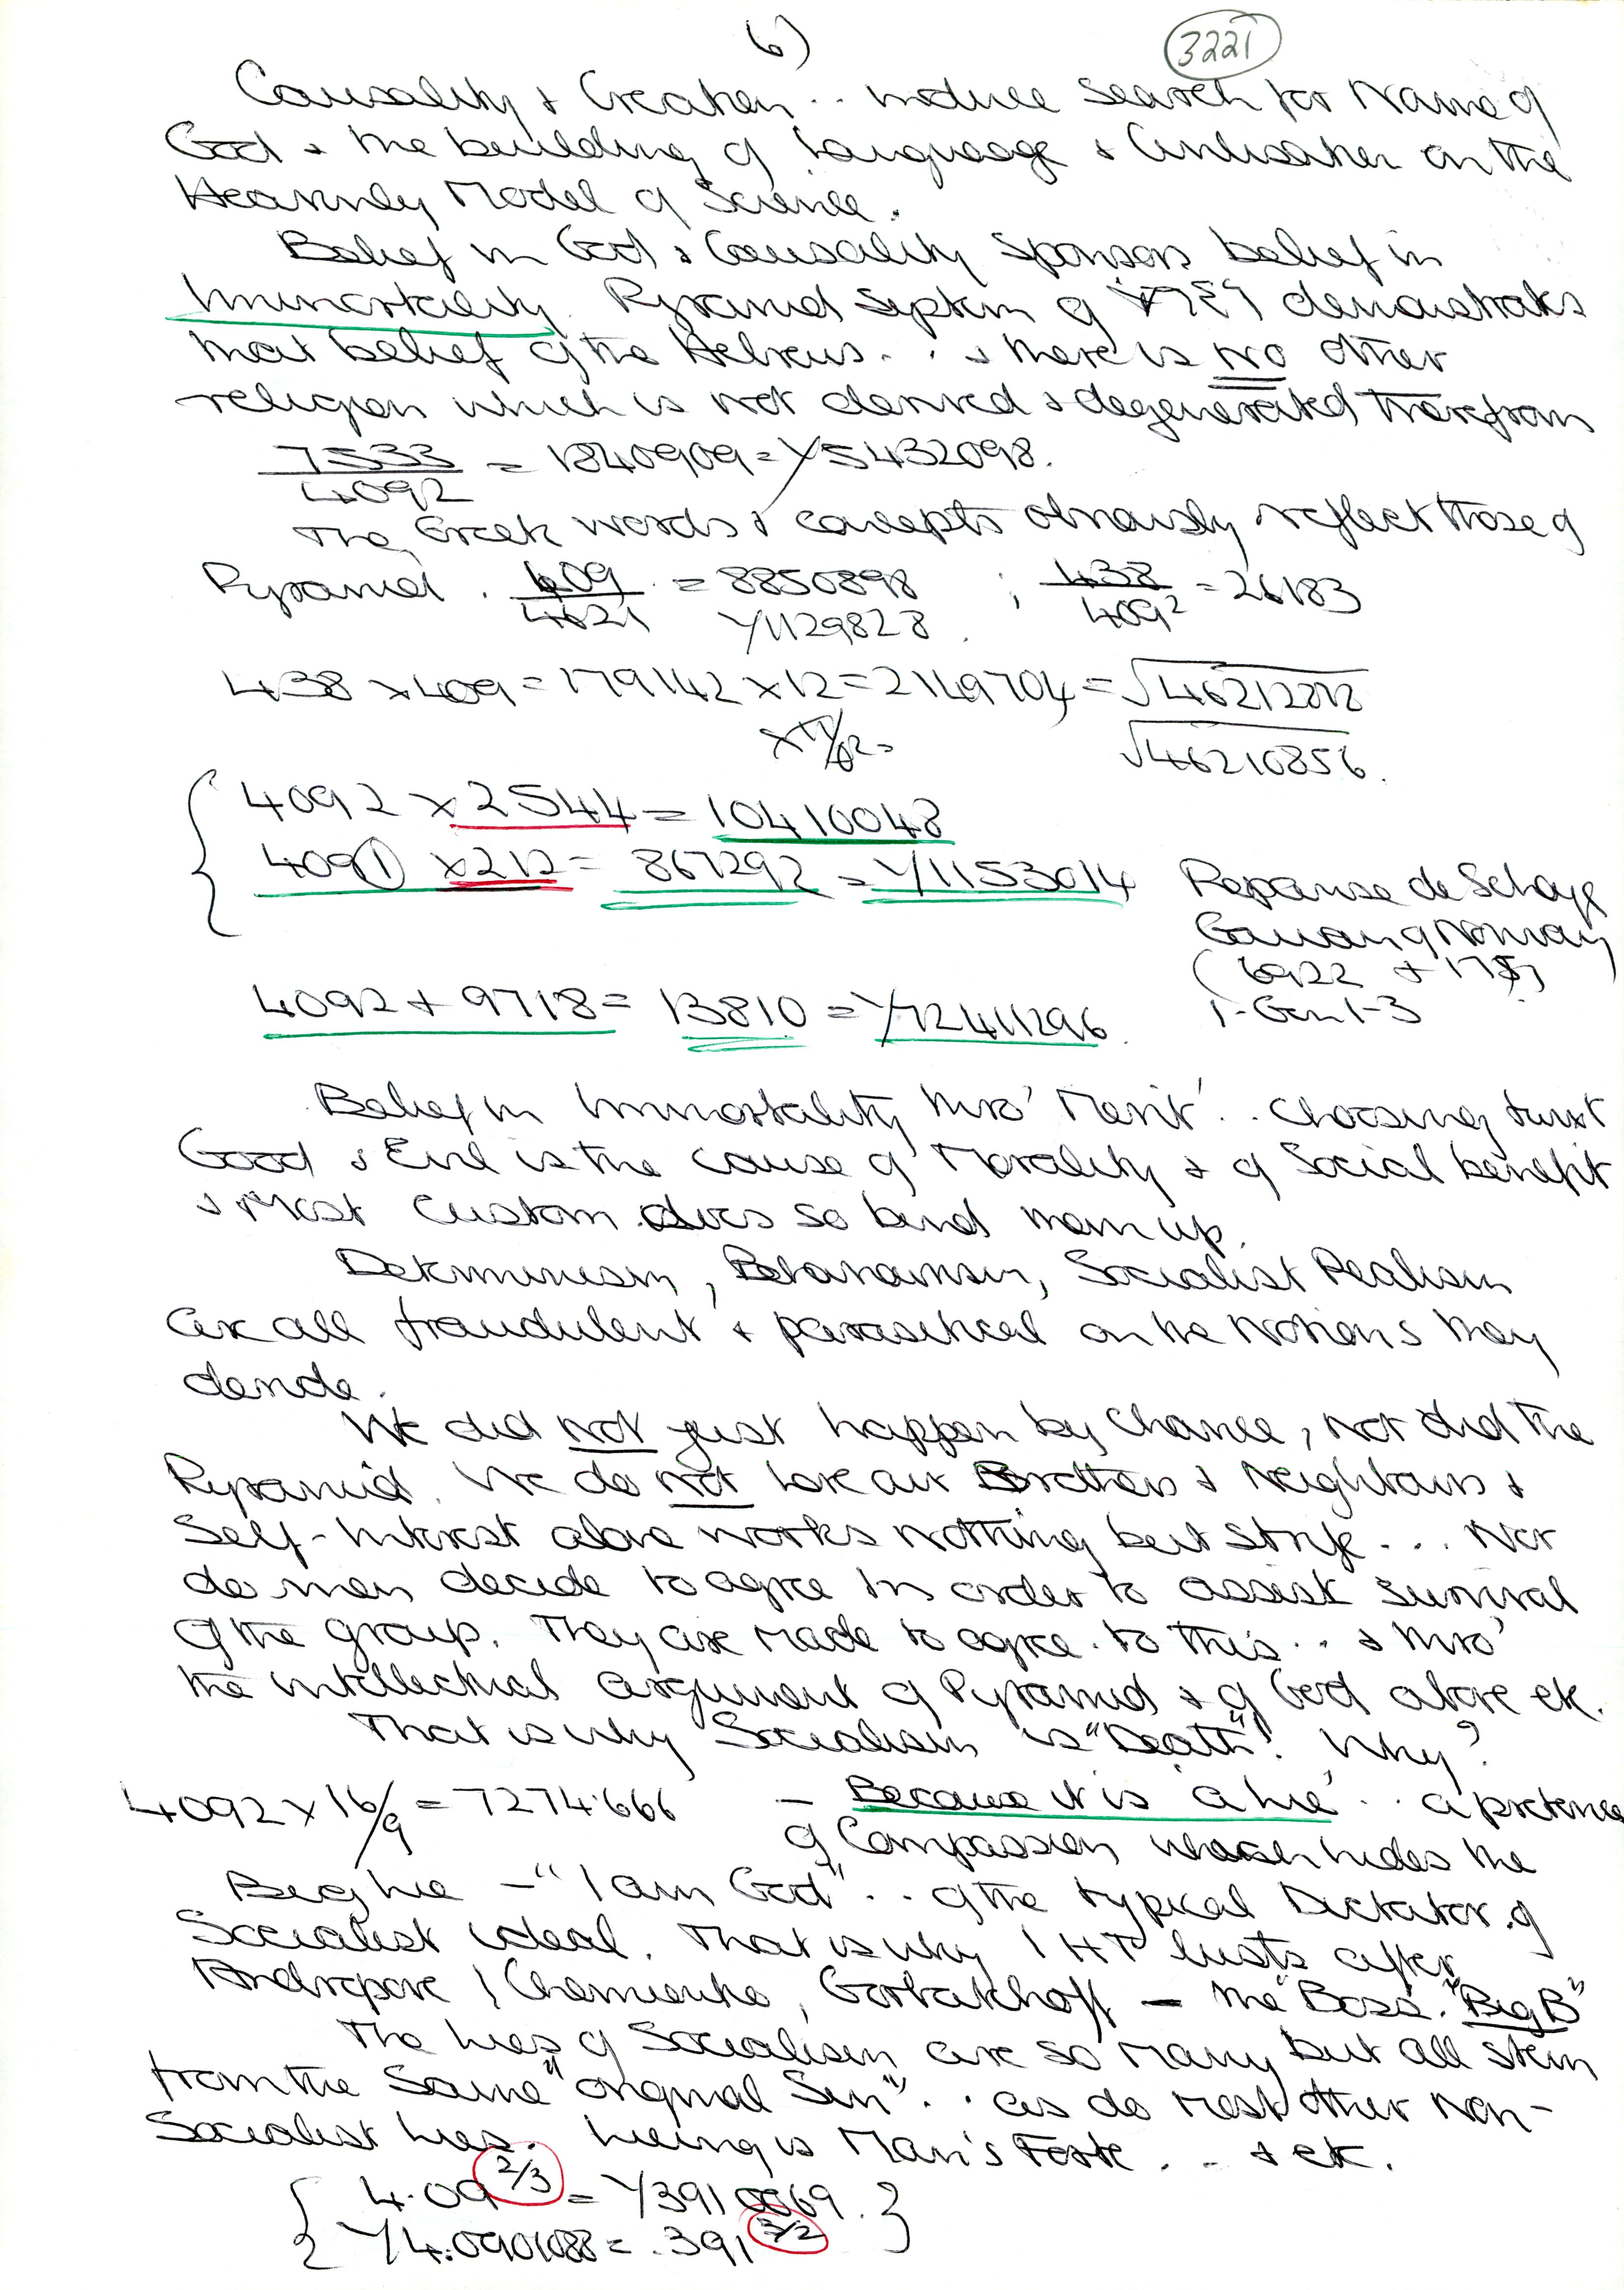 6)
3221
Causality & Creation .. induce search for Name of
God & the building of Language & Civilisation on the
Heavenly Model of Science.
Belief in God & Causality sponsors belief in
Immortality. Pyramid System of demonstrates
that belief of the Hebrews. . . & there is no other
religion which is not derived & degenerated therefrom
7533/4092 = 1840909 = 1/5432098.
The Greek words & concepts obviously reflect those of
Pyramid . 409/4621 = 8850898 ; 438/4092 = 26183
1/1129828 .
438 x 409 = 179142 x 12 = 2149704 = √46212272
√46210856.
4092 x 2544 = 10410048
4091 x 212 = 867292 = 1/1153014 Repanse de Schoye
Gawan of Norway
4092 + 9718 = 13810 = 1/72411296. 1-Gen 1-3
Belief in Immortality thro' 'Merit' . . choosing twixt
Good & Evil is the cause of Morality & of Social benefit
& Most Custom does so bind them up.
Determinism, Behaviourism, Socialist Realism
are all fraudulent & parasitical on the Notions they
deride.
We did not just happen by Chance, nor did the
Pyramid. We do not love our Brothers & Neighbours &
Self-Interest alone works nothing but strife. . . Nor
do men decide to agree in order to assist survival
of the group. They are made to agree to this. . & thro'
the intellectual argument of Pyramid & of God above etc.
That is why Socialism is "Death"! Why?
4092 x 16/9 = 7274.666 – Because it is a lie . . a pretence
of Compassion which hides the
Big lie – "I am God" . . of the typical Dictator of
Socialist ideal. That is why 1 HT lusts after
Andropove, Chernienko, Gorbatchoff – the "Boss". "Big B"
The lies of Socialism are so many but all stem
from the Same "original Sin" . . as do most other Non-
Socialist lies. Lieing is Man's Forte. . . & etc.
4.09 2/3 = 1/3910069.
1/4.0901088 = .391 3/2